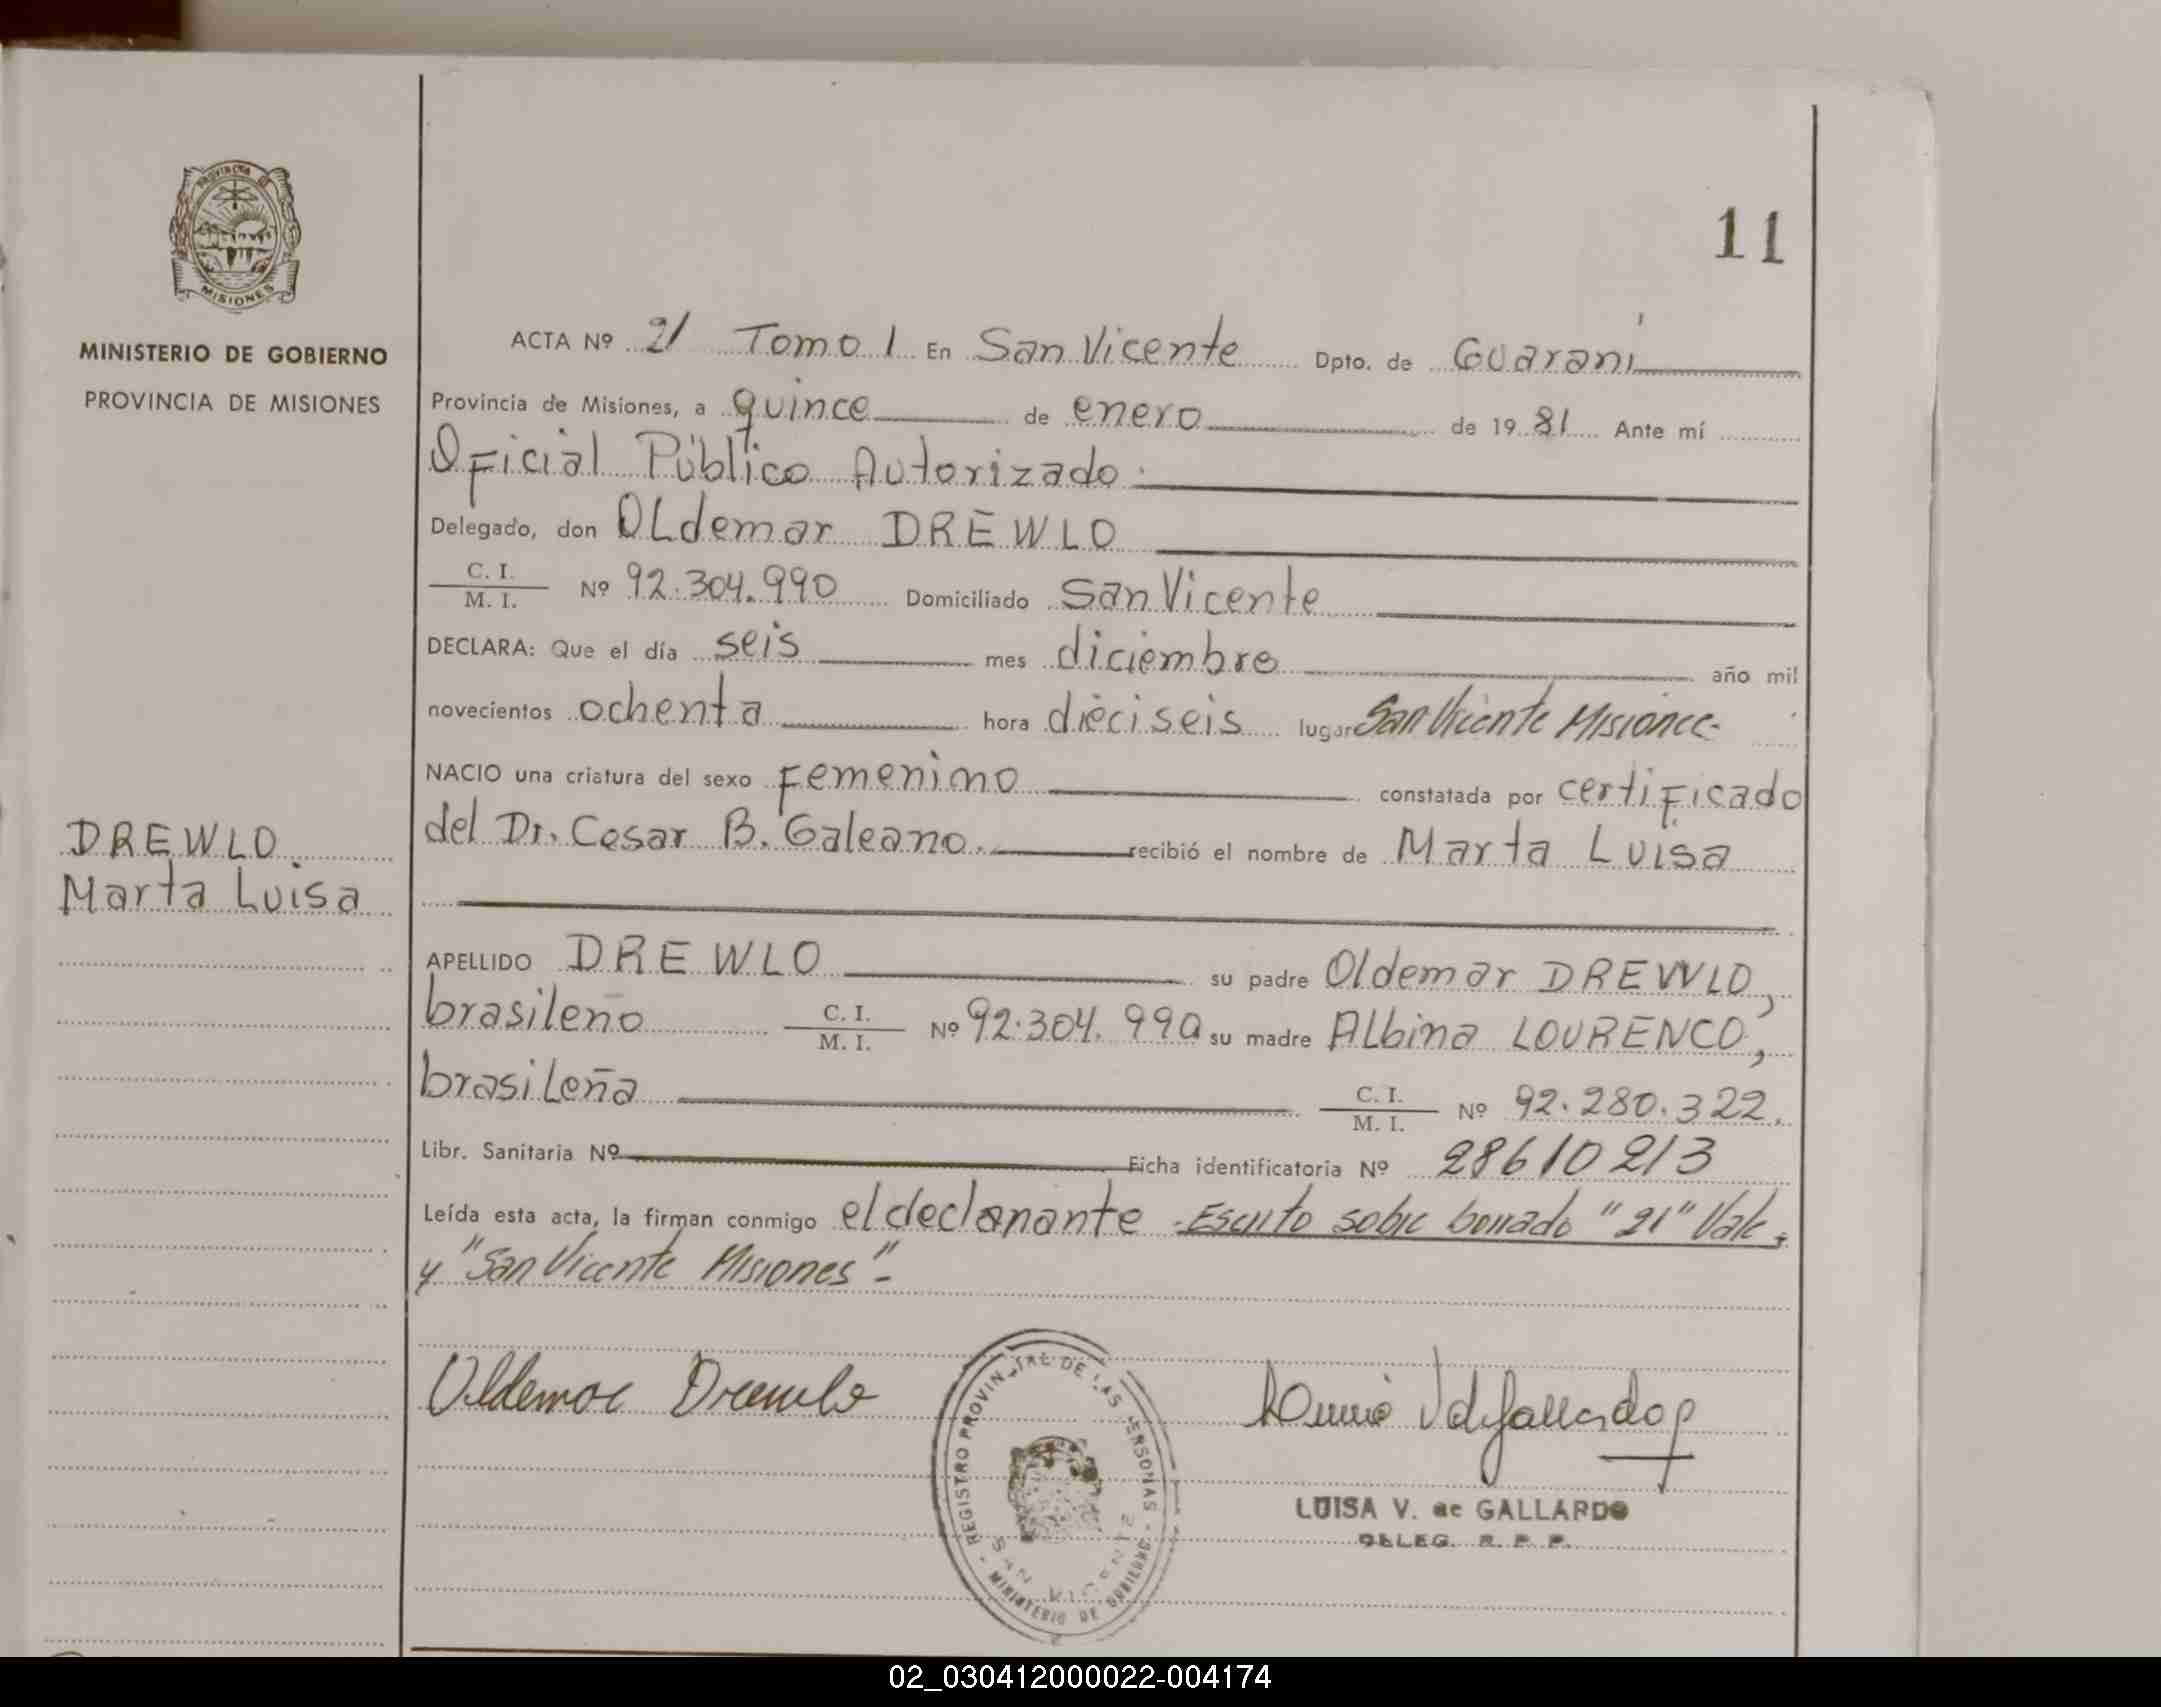 PROVINCIA DE
MISIONES
MINISTERIO DE GOBIERNO
PROVINCIA DE MISIONES
DREWLO.
Marta Luisa
11
ACTA Nº 21 Tomo 1 En San Vicente Dpto. de Guaraní
Provincia de Misiones, a quince de enero de 1981 Ante mí
Oficial Público Autorizado.
Delegado, don Oldemar DREWLO
C. I.
M. I. Nº 92.304.990 Domiciliado San Vicente
DECLARA: Que el día seis mes diciembre año mil
novecientos ochenta hora dieciseis lugar San Vicente Misiones
NACIO una criatura del sexo Femenino constatada por certificado
del Dr. Cesar B. Galeano. recibió el nombre de Marta Luisa
APELLIDO DREWLO su padre Oldemar DREWLO,
brasileño C. I.
M. I. Nº 92.304.990 su madre Albina LOURENCO,
brasileña C. I.
M. I. Nº 92.280.322.
Libr. Sanitaria Nº Ficha identificatoria Nº 28610213
Leída esta acta, la firman conmigo el declarante - Escrito sobre borrado "21" Vale
y "San Vicente Misiones" -
Oldemar Drewlo
REGISTRO PROVINCIAL DE LAS PERSONAS - MINISTERIO DE GOBIERNO -
SAN VICENTE
LUISA V. de GALLARDO
DELEG. R. P. P.
02_030412000022-004174